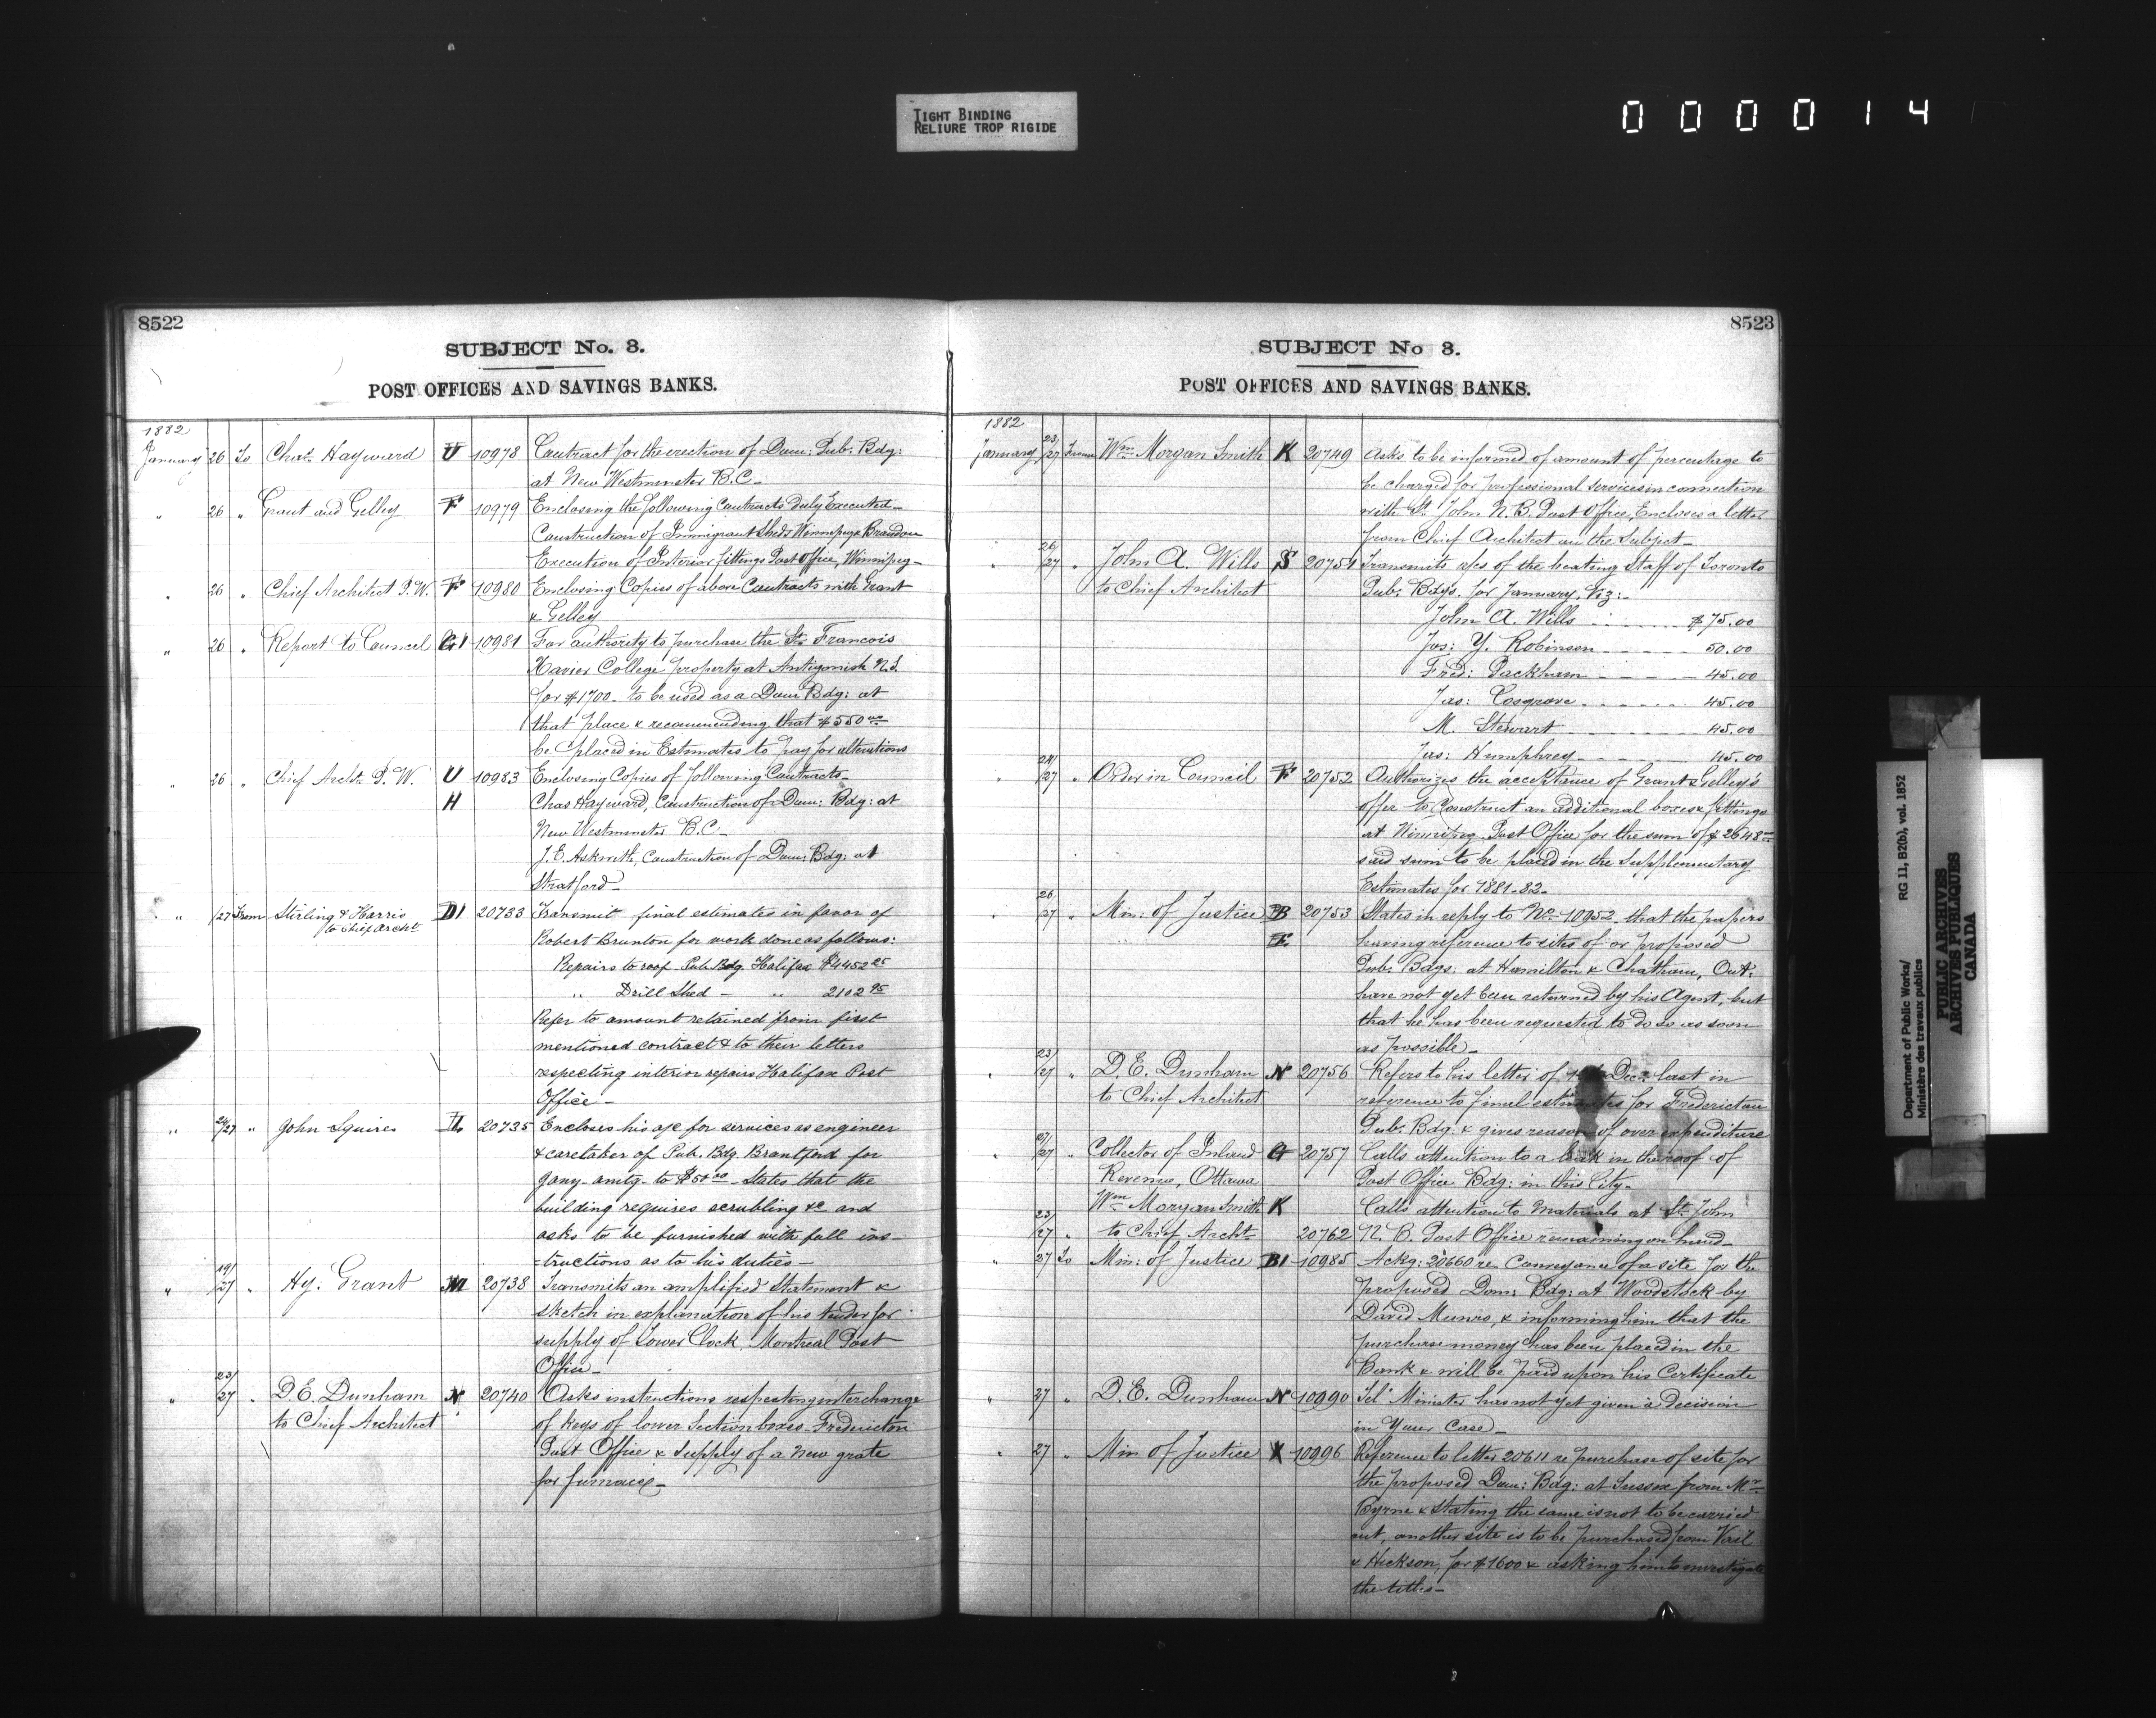 TIGHT BINDING
RELIURE TROP RIGIDE
000014
8522
SUBJECT No. 3.
POST OFFICES AND SAVINGS BANKS.
1882
January 26 To Chas. Hayward U 10978 Contract for the erection of Dom: Pub: Bdg:
at New Westminster B.C.
" 26 " Grant and Gelley F 10979 Enclosing the following Contracts Duly Executed
Construction of Immigrant Sheds Winnipeg & Brandon
Execution of Interior fittings Post Office, Winnipeg
" 26 " Chief Architect P.W. F 10980 Enclosing Copies of above Contracts with Grant
& Gelley
" 26 " Report to Council G1 10981 For authority to purchase the St. Francois
Xavier College property at Antigonish N.S.
for $1700 to be used as a Dom Bdg: at
that place & recommending that $550
be placed in Estimates to pay for alterations
" 26 " Chief Archt. P.W. U 10983 Enclosing Copies of following Contracts
H Chas Hayward, Construction of Dom: Bdg: at
New Westminster B.C.
J.E. Askwith, Construction of Dom: Bdg: at
Stratford
" 27 From Stirling & Harris D1 20733 Transmit final estimates in favor of
to Chief Archt Robert Brunton for work done as follows:
Repairs to roof Pub. Bdg. Halifax $4452 25
" Drill Shed - " 2102 95
Refer to amount retained from first
mentioned contract & to their letters
respecting interior repairs Halifax Post
Office
" 26/27 " John Squires 20735 Encloses his a/c for services as engineer
& caretaker of Pub. Bdg. Brantford for
Jany. amtg. to $50 00 States that the
building requires scrubbing &c and
asks to be furnished with full ins-
-tructions as to his duties
" 19/27 " Hy. Grant M 20738 Transmits an amplified Statement &
sketch in explanation of his tender for
supply of Tower Clock, Montreal Post
Office
" 23/27 " D.E. Dunham N 20740 Asks instructions respecting interchange
to Chief Architect of keys of lower Section boxes Fredericton
Post Office & supply of a new grate
for furnace
8523
SUBJECT No 3.
POST OFFICES AND SAVINGS BANKS.
1882
January 23/27 From Wm. Morgan Smith K 20749 Asks to be informed of amount of percentage to
be charged for professional services in connection
with St. John N.B. Post Office, Encloses a letter
from Chief Architect on the Subject
" 26/27 " John A. Wills S 20751 Transmits a/cs of the heating Staff of Toronto
to Chief Architect Pub. Bdgs. for January. Viz:-
John A. Wills $75.00
Jos: Y. Robinson 50.00
Fred: Packham 45.00
Jas: Cosgrove 45.00
M. Stewart 45.00
Jas: Humphrey 45.00
" 24/27 " Order in Council F 20752 Authorizes the acceptance of Grant & Gelley's
offer to Construct an additional boxes & fittings
at Winnipeg Post Office for the sum of $2648
said sum to be placed in the Supplementary
Estimates for 1881-82
" 26/27 " Min: of Justice B 20753 States in reply to No. 10952 that the papers
E having reference to sites of or proposed
Pub. Bdgs. at Hamilton & Chatham, Ont.
have not yet been returned by his Agent, but
that he has been requested to do so as soon
as possible
" 23/27 " D.E. Dunham N 20756 Refers to his letter of Decr. last in
to Chief Architect reference to final estimates for Fredericton
Pub. Bdg. & gives reason of over expenditure
" 27 " Collector of Inland G 20757 Calls attention to a leak in the roof of
Revenue, Ottawa Post Office Bdg: in this City
Wm. Morgan Smith K Calls attention to Materials at St. John
23/27 " to Chief Archt. 20762 N.B. Post Office remaining on hand
" 27 To Min: of Justice B1 10985 Ackg: 20660 re Conveyance of a site for the
proposed Dom: Bdg: at Woodstock by
David Munro, & informing him that the
purchase money has been placed in the
Bank & will be paid upon his Certificate
" 27 " D.E. Dunham N 10990 Tel. Minister has not yet given a decision
in Your Case
" 27 " Min of Justice X 10996 Reference to letter 20611 re purchase of site for
the proposed Dom: Bdg: at Sussex from Mr.
Byrne & stating the same is not to be carried
out, another site is to be purchased from Vail
& Hickson, for $1600 & asking him to investigate
the titles
Department of Public Works/
Ministère des travaux publics
RG 11, B2(b), vol. 1852
PUBLIC ARCHIVES
ARCHIVES PUBLIQUES
CANADA